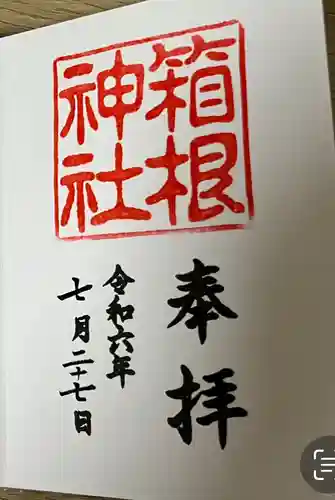 箱根
神社
奉拝
令和六年
七月二十七日